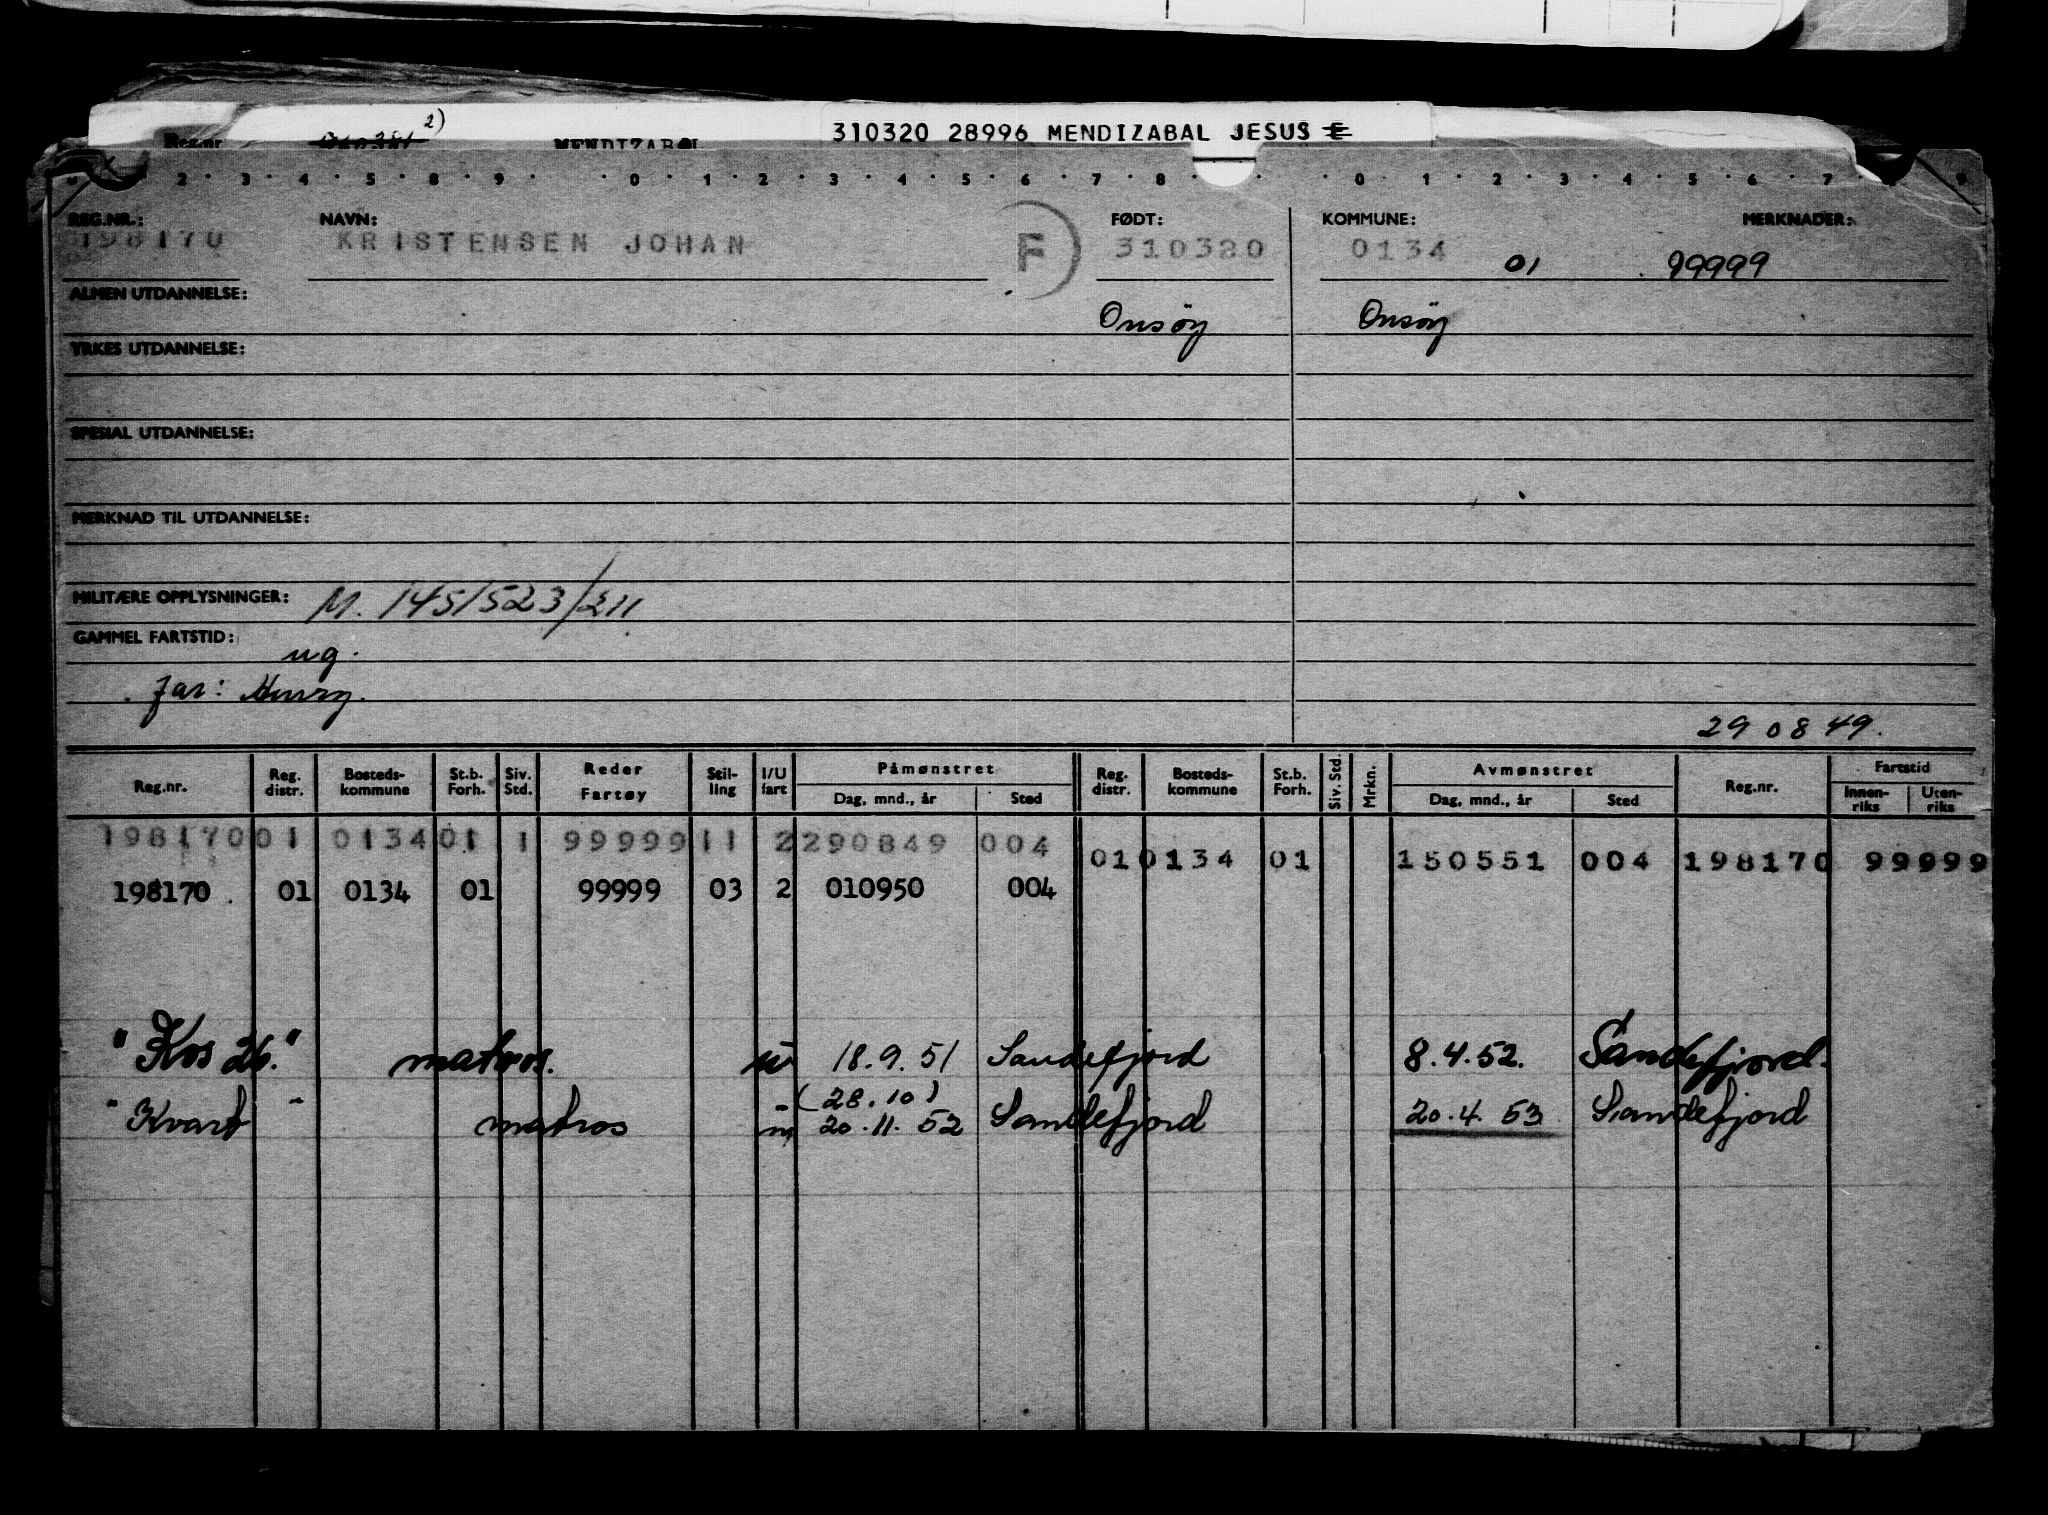 2)
Reg.nr. MENDIZABAL 310320 28996 MENDIZABAL JESUS E
2 3 4 5 8 9 0 1 2 3 4 5 6 7 8 0 1 2 3 4 5 6 7 8 9
REG.NR.: NAVN: FØDT: KOMMUNE: MERKNADER:
198170 KRISTENSEN JOHAN F 310320 0134 01 99999
ALMEN UTDANNELSE:
Onsöy Onsöy
YRKES UTDANNELSE:
SPESIAL UTDANNELSE:
MERKNAD TIL UTDANNELSE:
MILITÆRE OPPLYSNINGER: M. 1451523/211
GAMMEL FARTSTID:
ug.
far: Henry.
29 08 49.
Reg.nr. Reg. distr. Bosteds- kommune St.b. Forh. Siv. Std. Reder Fartøy Stil- ling I/U fart Påmønstret Dag, mnd., år Sted Reg. distr. Bosteds- kommune St.b. Forh. Siv. Std. Mrkn. Avmønstret Dag, mnd., år Sted Reg.nr. Fartstid Innen- riks Uten- riks
198170 01 0134 01 1 99999 11 2 290849 004 01 0134 01 150551 004 198170 99999
198170. 01 0134 01 99999 03 2 010950 004
"Kos 26." matros. u 18.9.51 Sandefjord 8.4.52. Sandefjord.
(28.10)
"Kvart" matros u 20.11.52 Sandefjord 20.4.53 Sandefjord